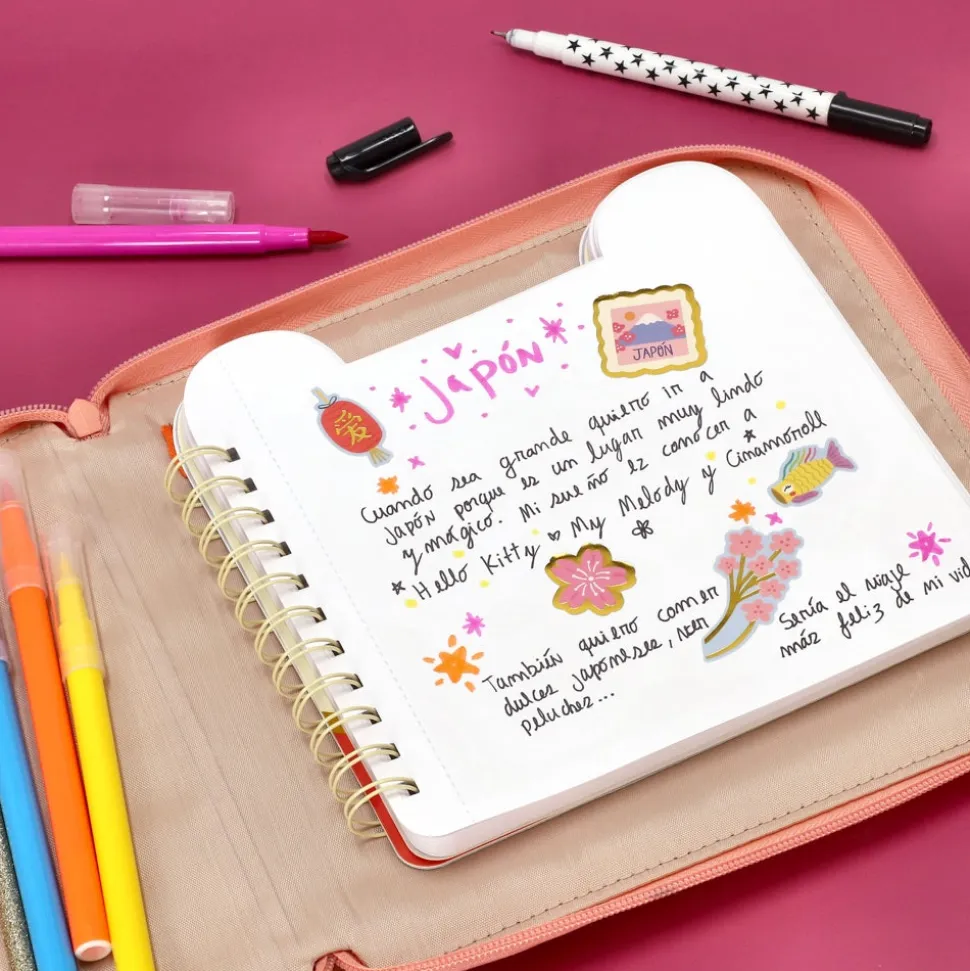 Japón
JAPÓN
爱
Cuando sea grande quiero ir a
Japón porque es un lugar muy lindo
y mágico. Mi sueño es conocer a
Hello Kitty My Melody y Cinamoroll
También quiero comer
dulces japonesee, ver
peluches...
Sería el viaje
más feliz de mi vid